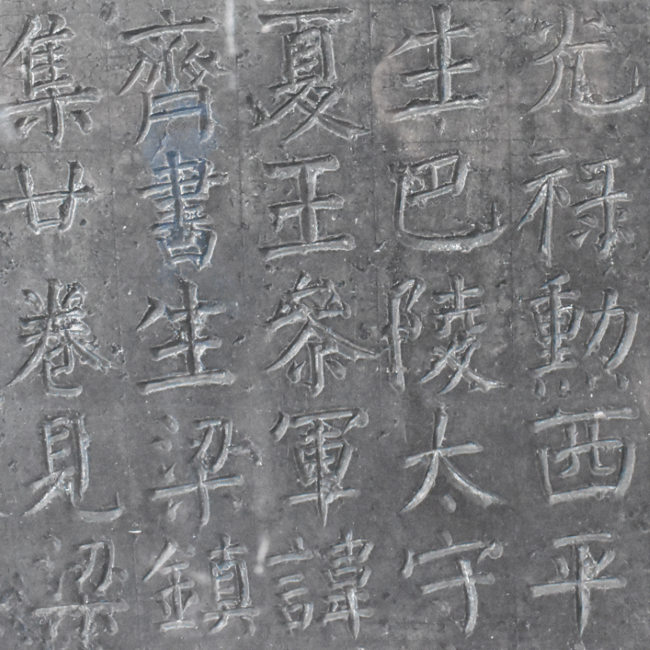 光禄勳西平
生巴陵太守
夏王叅軍諱
齊書生梁鎮
集廿卷見梁